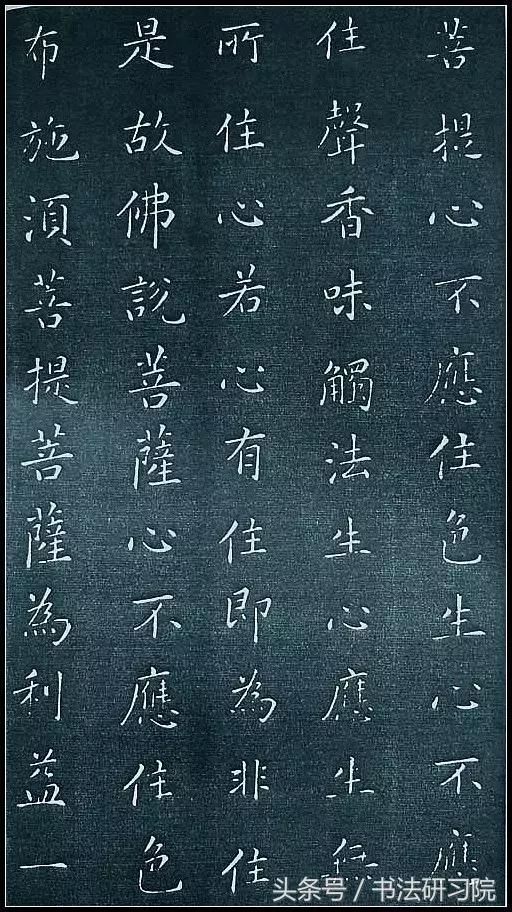 菩提心不應住色生心不應
住聲香味觸法生心應生無
所住心若心有住即為非住
是故佛說菩薩心不應住色
布施須菩提菩薩為利益一
头条号／书法研习院